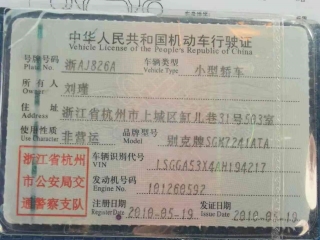 中华人民共和国机动车行驶证
Vehicle License of the People's Republic of China
号牌号码 浙AJ826A 车辆类型 小型轿车
Plate No. Vehicle Type
所有人 刘瑾
Owner
住址 浙江省杭州市上城区缸儿巷31号503室
Address
使用性质 非营运 品牌型号 别克牌SGM7241ATA
Use Character Model
浙江省杭州 车辆识别代号 LSGGA53X4AH194217
VIN
市公安局交 发动机号码 101260592
Engine No.
通警察支队 注册日期 2010-05-19 发证日期 2010-05-19
Register Date Issue Date